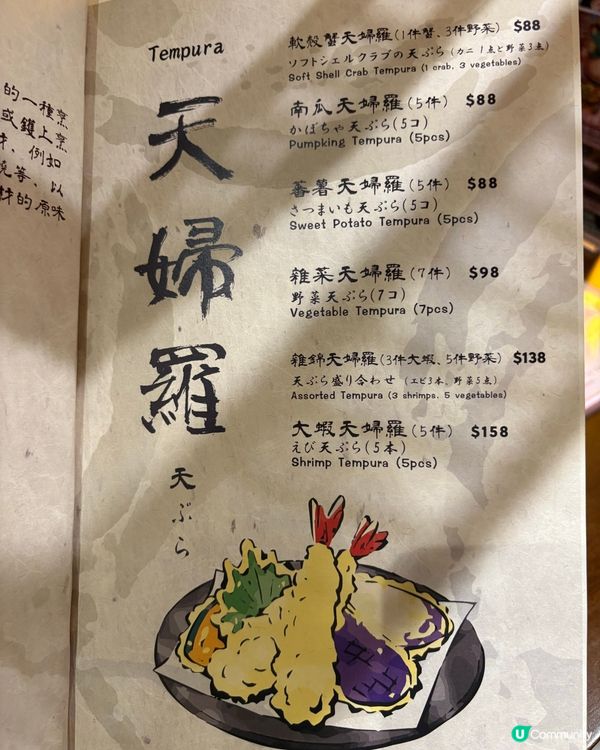 的一種烹
或鑊上烹
才、例如
燒等、以
材的原味
Tempura
天婦羅
天ぷら
軟殼蟹天婦羅(1件蟹、3件野菜) $88
ソフトシェルクラブの天ぷら (カニ1点と野菜3点)
Soft Shell Crab Tempura (1 crab. 3 vegetables)
南瓜天婦羅(5件) $88
かぼちゃ天ぷら(5コ)
Pumpking Tempura (5pcs)
蕃薯天婦羅(5件) $88
さつまいも天ぷら(5コ)
Sweet Potato Tempura (5pcs)
雜菜天婦羅(7件) $98
野菜天ぷら(7コ)
Vegetable Tempura (7pcs)
雜錦天婦羅(3件大蝦、5件野菜) $138
天ぷら盛り合わせ (エビ3本、野菜5点)
Assorted Tempura (3 shrimps. 5 vegetables)
大蝦天婦羅(5件) $158
えび天ぷら(5本)
Shrimp Tempura (5pcs)
U Community